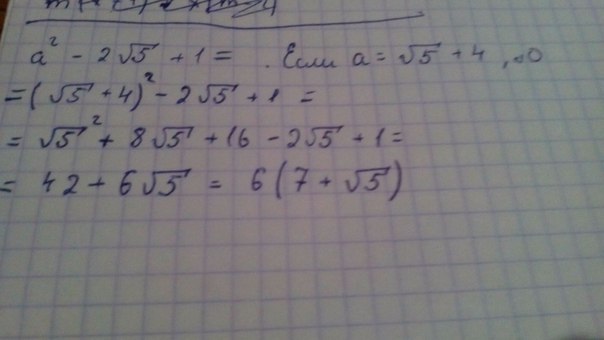 a² - 2√5 + 1 = . Если a = √5 + 4, то
= (√5 + 4)² - 2√5 + 1 =
= √5² + 8√5 + 16 - 2√5 + 1 =
= 42 + 6√5 = 6(7 + √5)